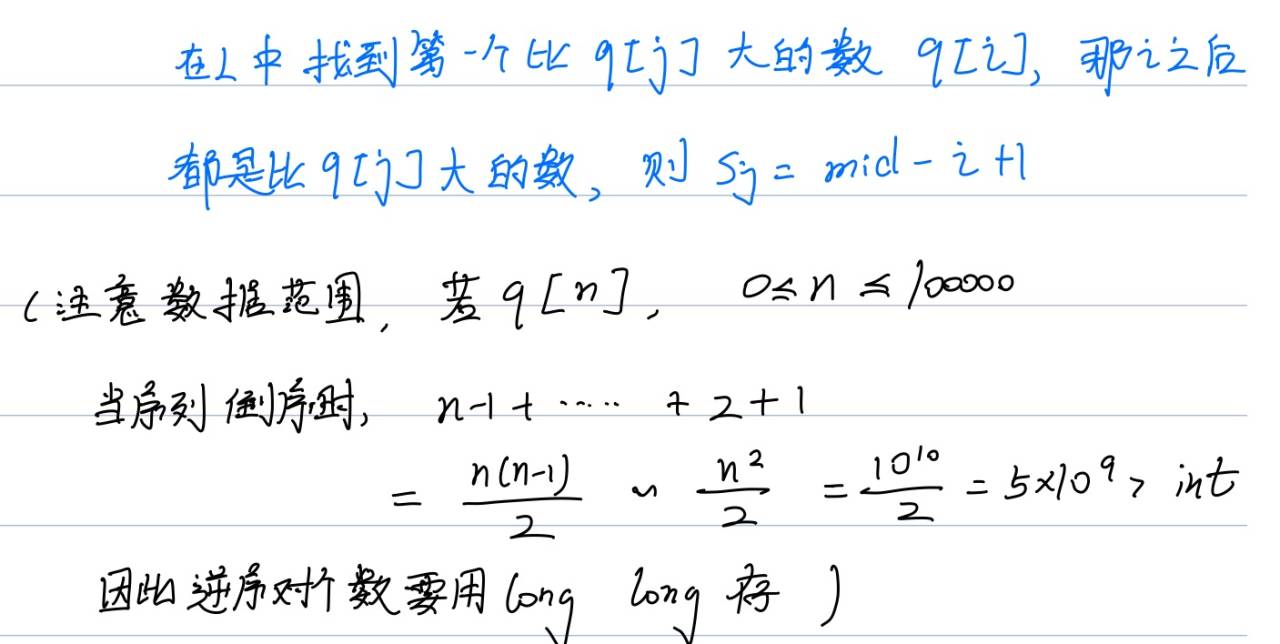 在L中找到第一个比 q[j] 大的数 q[i], 那i之后
都是比 q[j] 大的数, 则 Sj = mid - i + 1
(注意数据范围, 若 q[n], 0≤n≤100000
当序列倒序时, n-1 + ····· + 2+1
= n(n-1)/2 ~ n²/2 = 10¹⁰/2 = 5×10⁹ > int
因此逆序对个数要用 long long 存 )